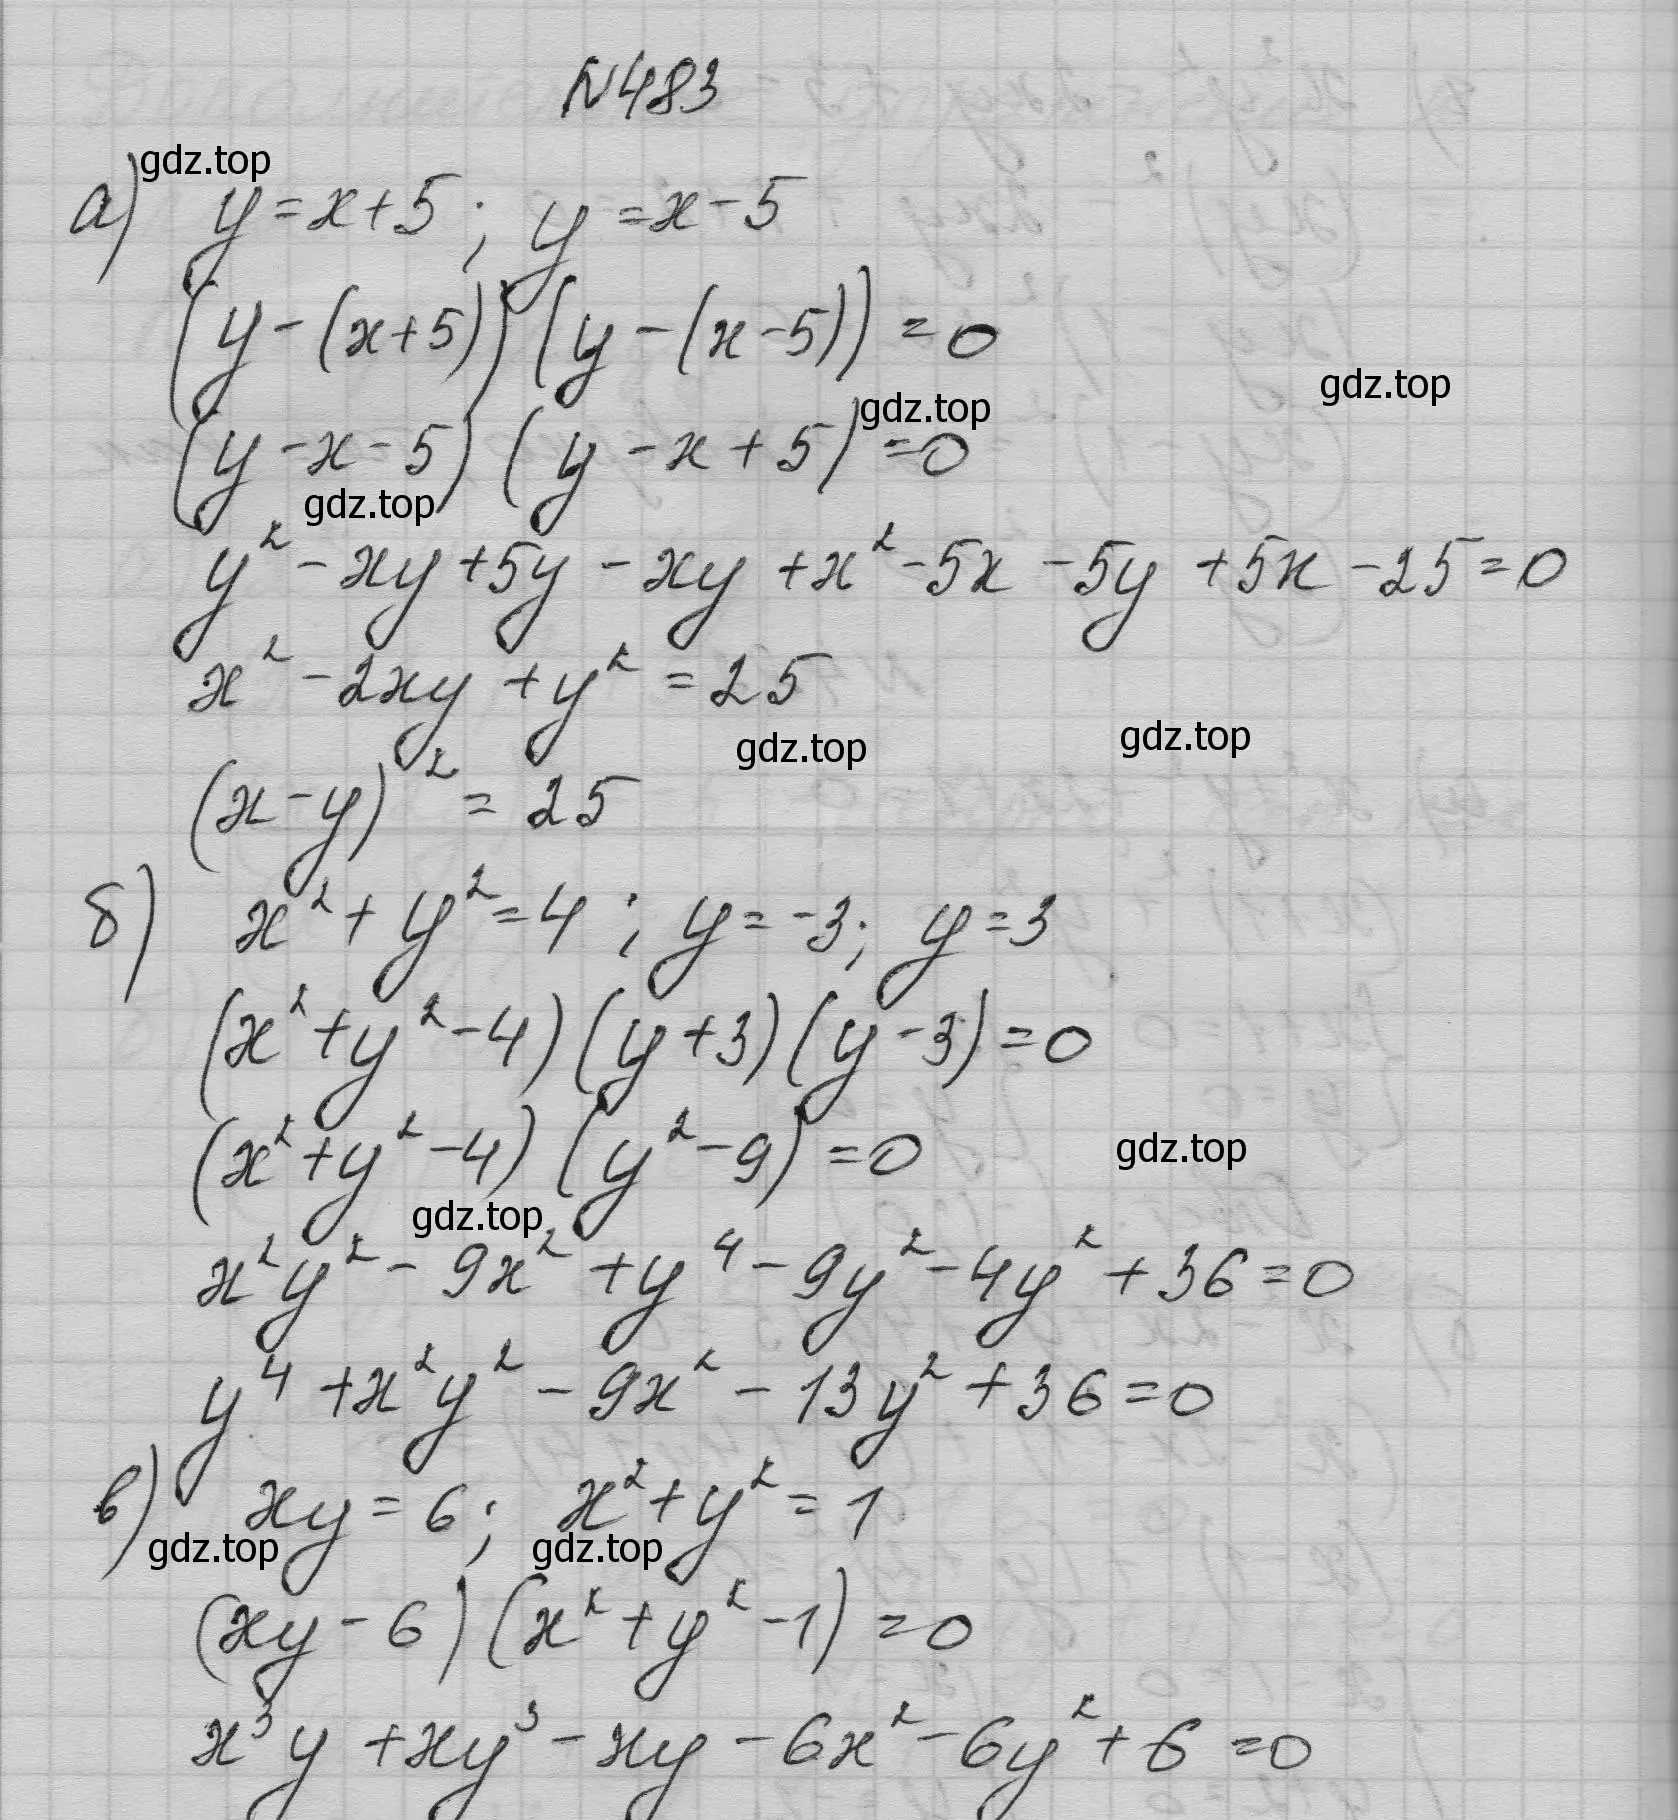 N483
gdz.top
а) y = x + 5 ; y = x - 5
(y - (x + 5)) (y - (x - 5)) = 0
gdz.top
gdz.top
(y - x - 5) (y - x + 5) = 0
gdz.top
y² - xy + 5y - xy + x² - 5x - 5y + 5x - 25 = 0
x² - 2xy + y² = 25
gdz.top
gdz.top
(x - y)² = 25
б) x² + y² = 4 ; y = -3 ; y = 3
(x² + y² - 4) (y + 3) (y - 3) = 0
(x² + y² - 4) (y² - 9) = 0
gdz.top
gdz.top
x²y² - 9x² + y⁴ - 9y² - 4y² + 36 = 0
y⁴ + x²y² - 9x² - 13y² + 36 = 0
в) xy = 6 ; x² + y² = 1
gdz.top
gdz.top
(xy - 6) (x² + y² - 1) = 0
x³y + xy³ - xy - 6x² - 6y² + 6 = 0